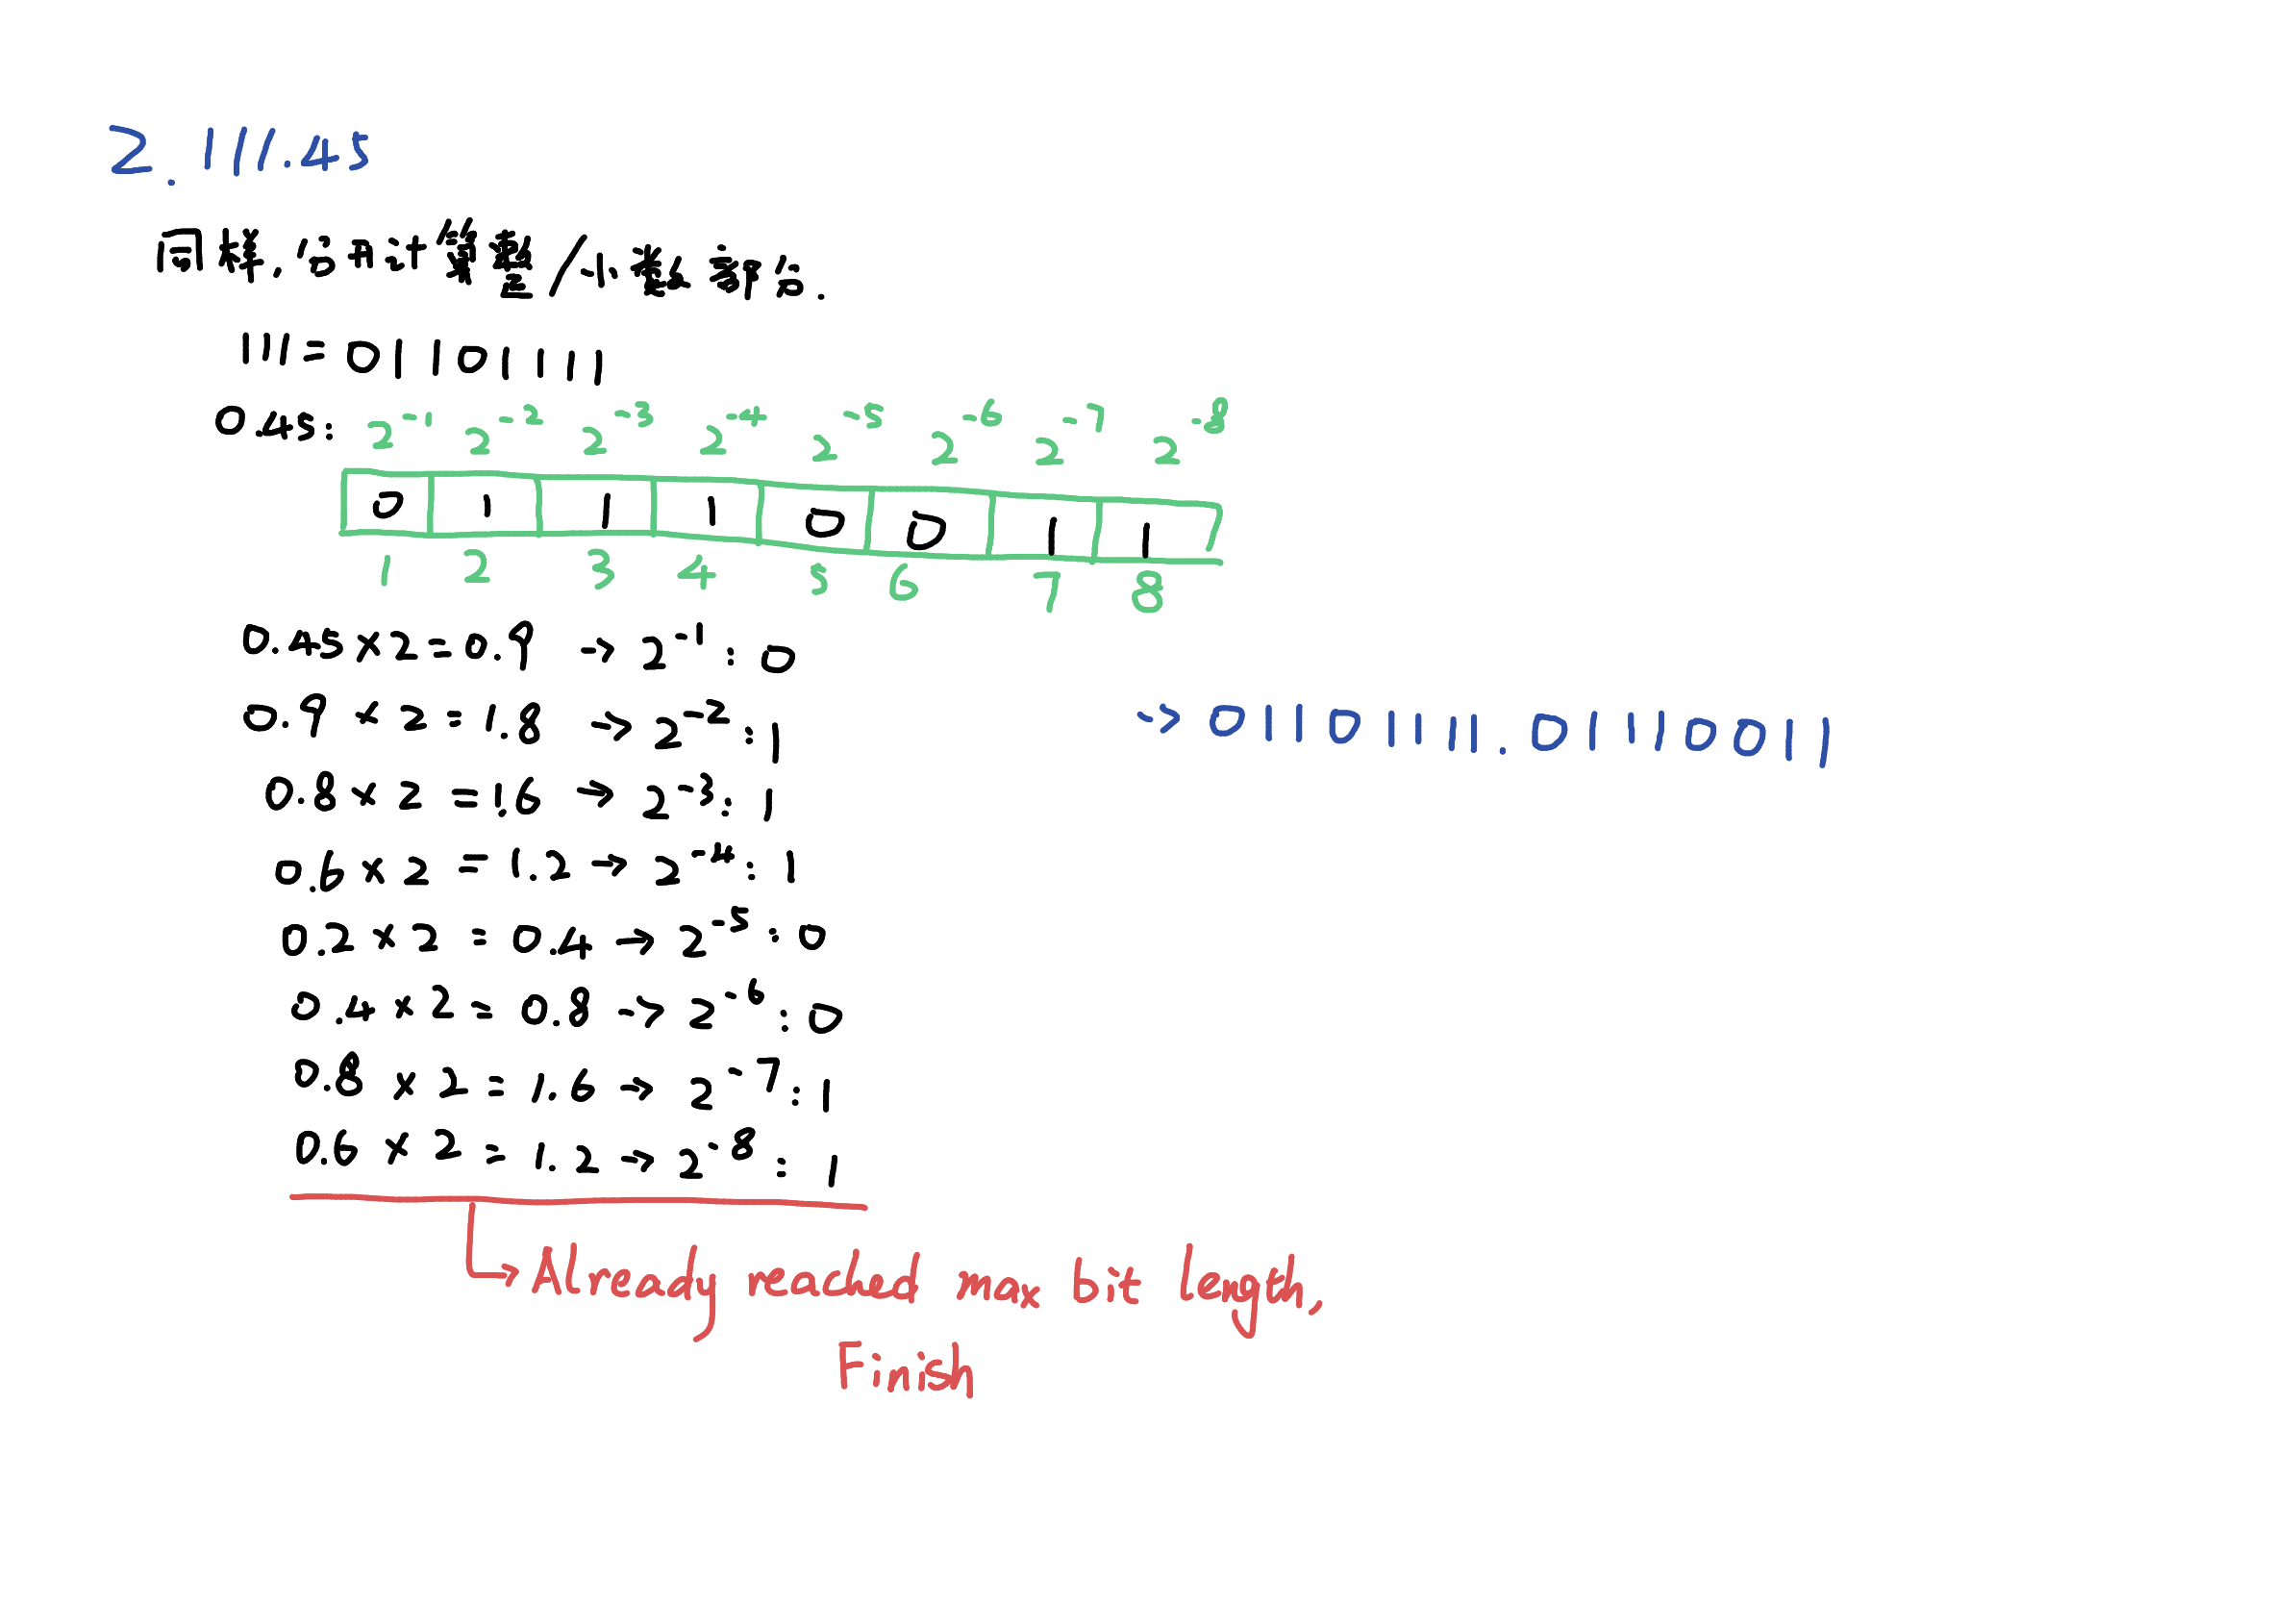 2. 111.45
同样, 分开计算整/小数部分.
111=01101111
0.45: 2⁻¹ 2⁻² 2⁻³ 2⁻⁴ 2⁻⁵ 2⁻⁶ 2⁻⁷ 2⁻⁸
0 1 1 1 0 0 1 1
1 2 3 4 5 6 7 8
0.45×2=0.9 → 2⁻¹: 0
0.9×2=1.8 → 2⁻²: 1
0.8×2=1.6 → 2⁻³: 1
0.6×2=1.2 → 2⁻⁴: 1
0.2×2=0.4 → 2⁻⁵: 0
0.4×2=0.8 → 2⁻⁶: 0
0.8×2=1.6 → 2⁻⁷: 1
0.6×2=1.2 → 2⁻⁸: 1
→ Already reached max bit length,
Finish
→ 01101111.01110011